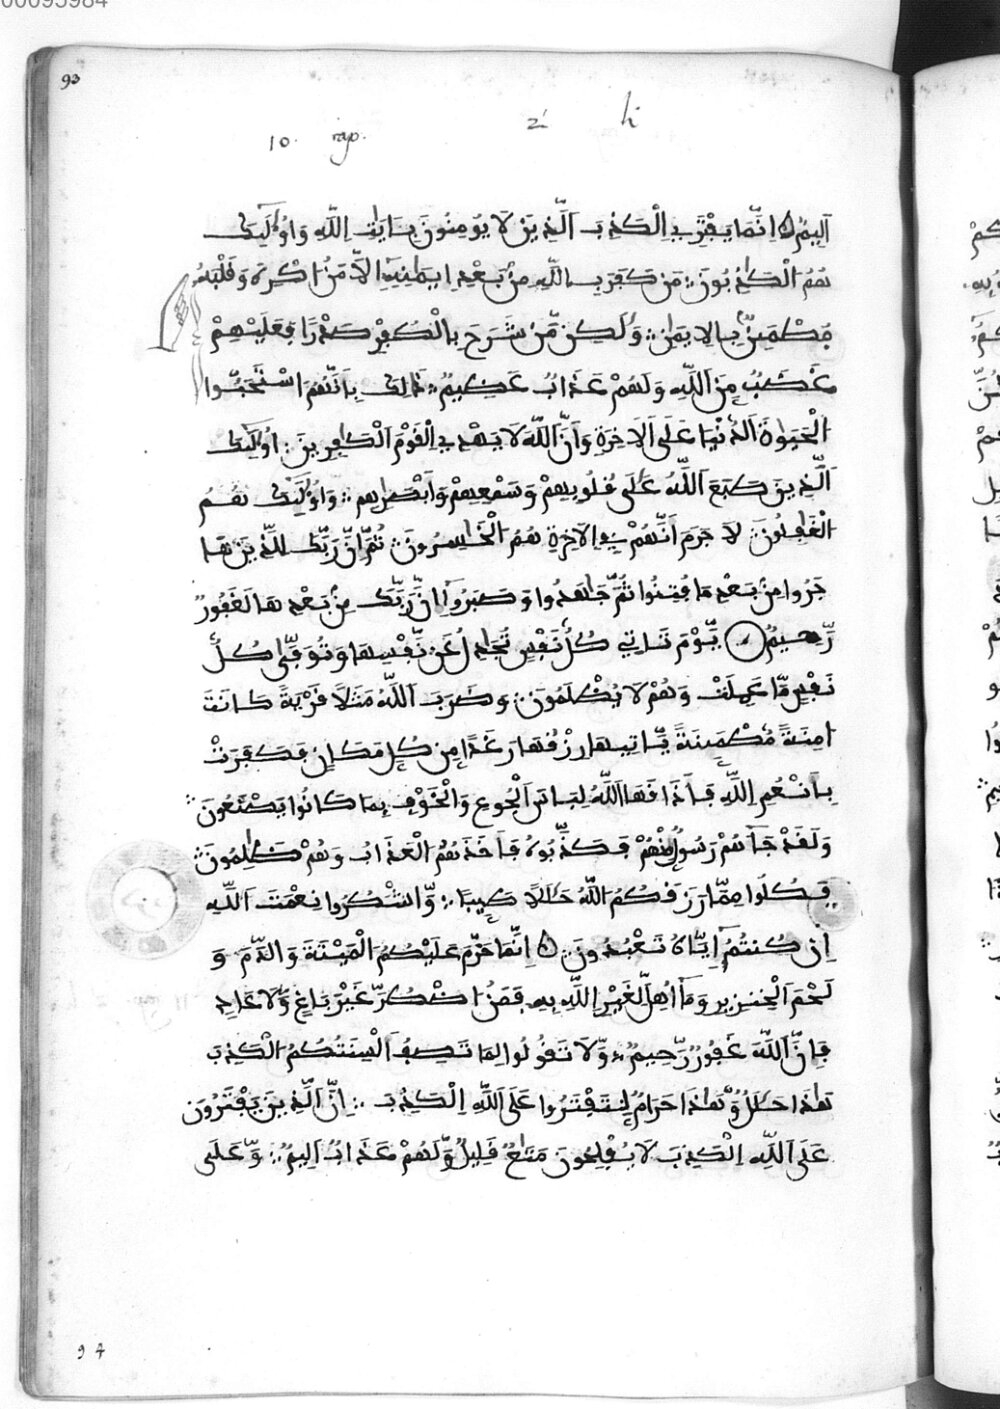 00095984
93
10. rap. 2 h
اَلِيمٌ اِنَّمَا يَفْتَرِي اِلْكَذِبَ اَلَّذِينَ لَا يُومِنُونَ بِـَٔايَٰتِ اِللَّهِ وَاُوْلَٰٓئِكَ
هُمُ الْكَٰذِبُونَ مَن كَفَرَ بِاللَّهِ مِنْ بَعْدِ اِيمَٰنِهِ اِلَّا مَنُ اكْرِهَ وَقَلْبُهُ
مُطْمَئِنٌّ بِالِايمَٰنِ وَلَٰكِن مَّن شَرَحَ بِالْكُفْرِ صَدْرًا فَعَلَيْهِمْ
غَضَبٌ مِّنَ اَللَّهِ وَلَهُمْ عَذَابٌ عَظِيمٌ ذَٰلِكَ بِأَنَّهُمُ اسْتَحَبُّوا
الْحَيَوٰةَ اَلدُّنْيَا عَلَى اَلَاخِرَةِ وَأَنَّ اَللَّهَ لَا يَهْدِي اِلْقَوْمَ اَلْكَٰفِرِينَ اُوْلَٰٓئِكَ
اَلَّذِينَ طَبَعَ اَللَّهُ عَلَى قُلُوبِهِمْ وَسَمْعِهِمْ وَأَبْصَٰرِهِم وَاُوْلَٰٓئِكَ هُمُ
الْغَٰفِلُونَ لَا جَرَمَ أَنَّهُمْ فِي الَاخِرَةِ هُمُ الْخَٰسِرُونَ ثُمَّ إِنَّ رَبَّكَ لِلَّذِينَ هَا
جَرُوا مِنْ بَعْدِ مَا فُتِنُوا ثُمَّ جَٰهَدُوا وَصَبَرُوا إِنَّ رَبَّكَ مِنْ بَعْدِهَا لَغَفُورٌ
رَّحِيمٌ يَوْمَ تَاتِي كُلُّ نَفْسٍ تُجَٰدِلُ عَن نَّفْسِهَا وَتُوَفَّىٰ كُلُّ
نَفْسٍ مَّا عَمِلَتْ وَهُمْ لَا يُظْلَمُونَ وَضَرَبَ اَللَّهُ مَثَلًا قَرْيَةً كَانَتَ
امِنَةً مُّطْمَئِنَّةً يَّاتِيهَا رِزْقُهَا رَغَدًا مِن كُلِّ مَكَانٍ فَكَفَرَتْ
بِأَنْعُمِ اِللَّهِ فَأَذَاقَهَا اَللَّهُ لِبَاسَ اَلْجُوعِ وَالْخَوْفِ بِمَا كَانُوا يَصْنَعُونَ
وَلَقَدْ جَآءَهُمْ رَسُولٌ مِّنْهُمْ فَكَذَّبُوهُ فَأَخَذَهُمُ الْعَذَابُ وَهُمْ ظَٰلِمُونَ
فَكُلُوا مِمَّا رَزَقَكُمُ اللَّهُ حَلَٰلًا طَيِّبًا وَّاشْكُرُوا نِعْمَتَ اَللَّهِ
إِن كُنتُمُ إِيَّاهُ تَعْبُدُونَ اِنَّمَا حَرَّمَ عَلَيْكُمُ الْمَيْتَةَ وَالدَّمَ وَ
لَحْمَ اَلْخِنزِيرِ وَمَآ أُهِلَّ لِغَيْرِ اِللَّهِ بِهِ فَمَنُ اضْطُرَّ غَيْرَ بَاغٍ وَّلَا عَادٍ
فَإِنَّ اَللَّهَ غَفُورٌ رَّحِيمٌ وَّلَا تَقُولُوا لِمَا تَصِفُ أَلْسِنَتُكُمُ الْكَذِبَ
هَٰذَا حَلَٰلٌ وَّهَٰذَا حَرَامٌ لِّتَفْتَرُوا عَلَى اَللَّهِ اِلْكَذِبَ إِنَّ اَلَّذِينَ يَفْتَرُونَ
عَلَى اَللَّهِ اِلْكَذِبَ لَا يُفْلِحُونَ مَتَٰعٌ قَلِيلٌ وَّلَهُمْ عَذَابٌ اَلِيمٌ وَّعَلَى
94